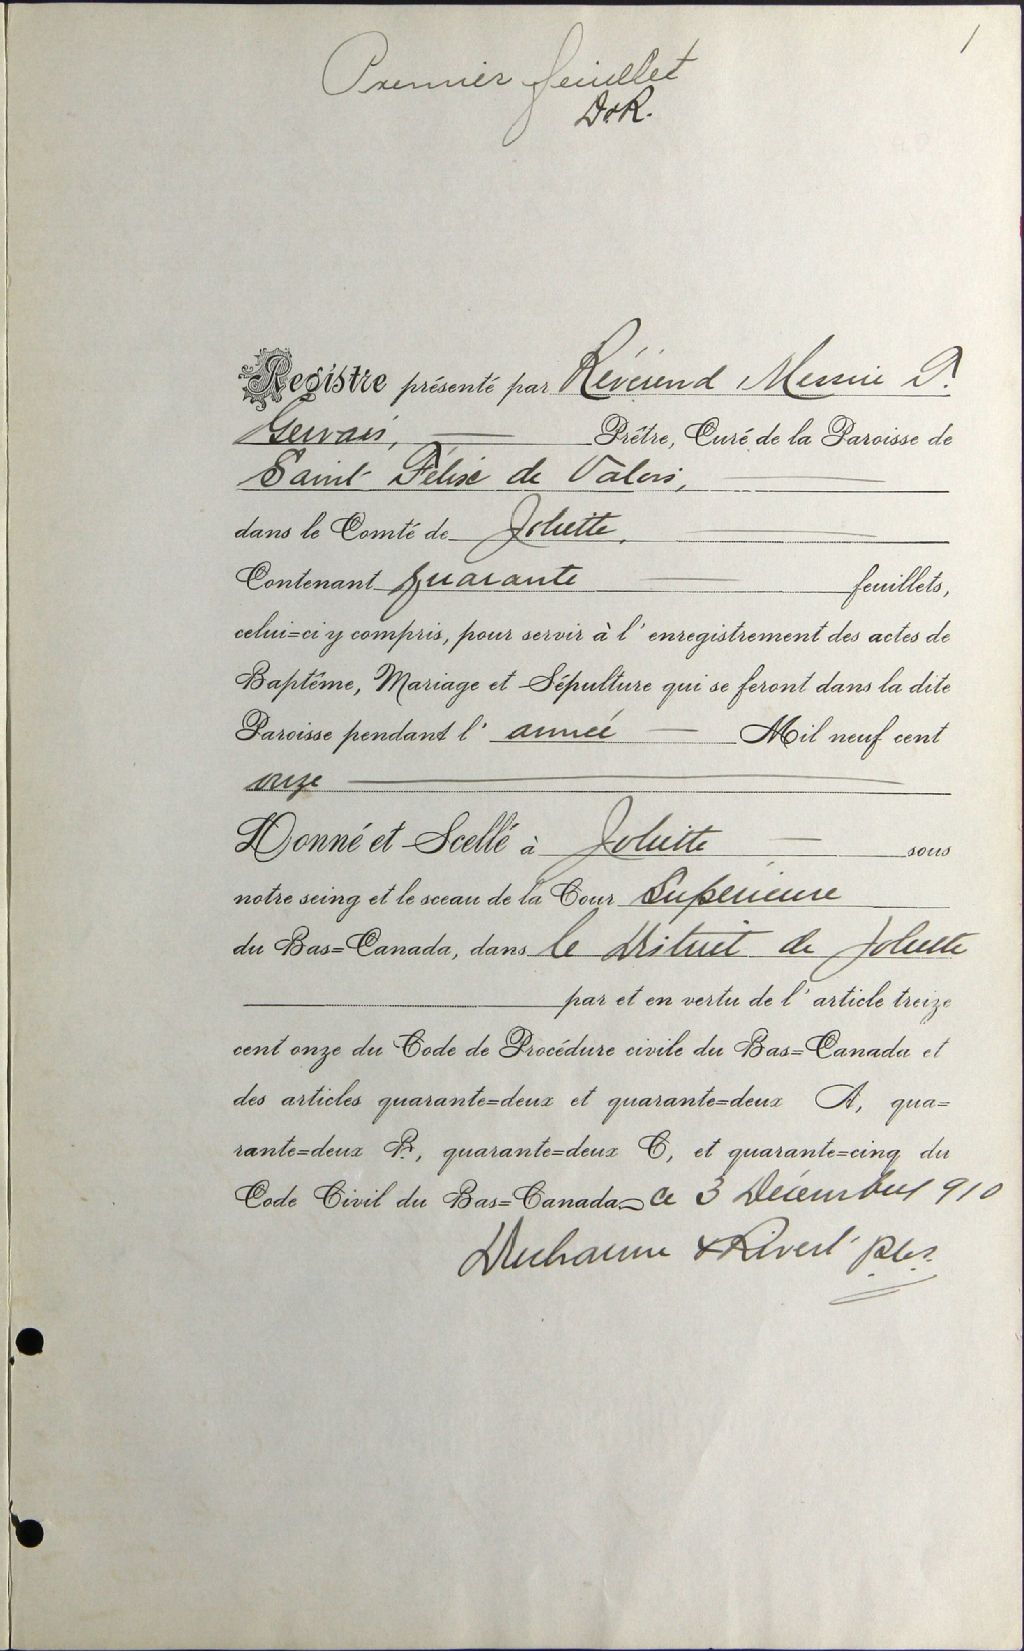 1
Premier feuillet
D & R.
Registre présenté par Révérend Messire P.
Gervais, Prêtre, Curé de la Paroisse de
Saint Félix de Valois,
dans le Comté de Joliette.
Contenant quarante feuillets,
celui=ci y compris, pour servir à l'enregistrement des actes de
Baptême, Mariage et Sépulture qui se feront dans la dite
Paroisse pendant l'année Mil neuf cent
onze
Donné et Scellé à Joliette sous
notre seing et le sceau de la Cour Supérieure
du Bas=Canada, dans le District de Joliette
par et en vertu de l'article treize
cent onze du Code de Procédure civile du Bas=Canada et
des articles quarante=deux et quarante=deux A, qua=
rante=deux B, quarante=deux C, et quarante=cinq du
Code Civil du Bas=Canada ce 3 Décembre 1910
Ducharme & Rivest p.c.s.